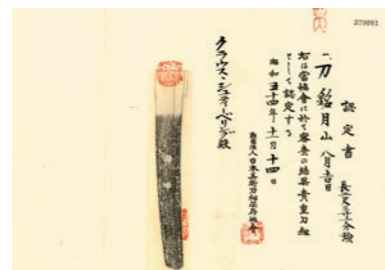 270081
認定書
一、刀 銘 月山 八月吉日
長二尺三寸一分強
右は當協會に於て審査の結果貴重刀剣
として認定する
昭和五十四年十一月十四日
財団法人日本美術刀剣保存協會
クラウス・シュティーベリング殿